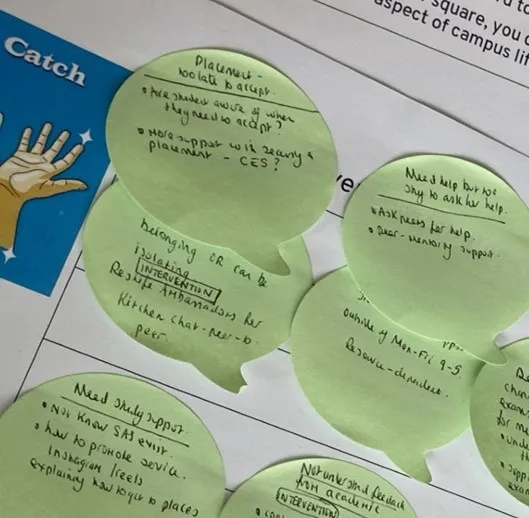 square, you
aspect of campus lif
Catch
Placement -
too late to accept.
• Are student aware of when
they need to accept?
• More support with securing a
placement - CES?
Need help but too
shy to ask for help.
• Ask peers for help.
• Peer-mentoring support.
belonging OR can be
isolating
INTERVENTION
Reslife Ambassadors for
Kitchen Chat - peer-to-
peer.
outside of Mon-Fri 9-5.
Resource-dependent.
Need study support
• Not know SAS exist.
• how to promote service.
Instagram reels
explaining how to get to places
Not understand feedback
from academic
INTERVENTION